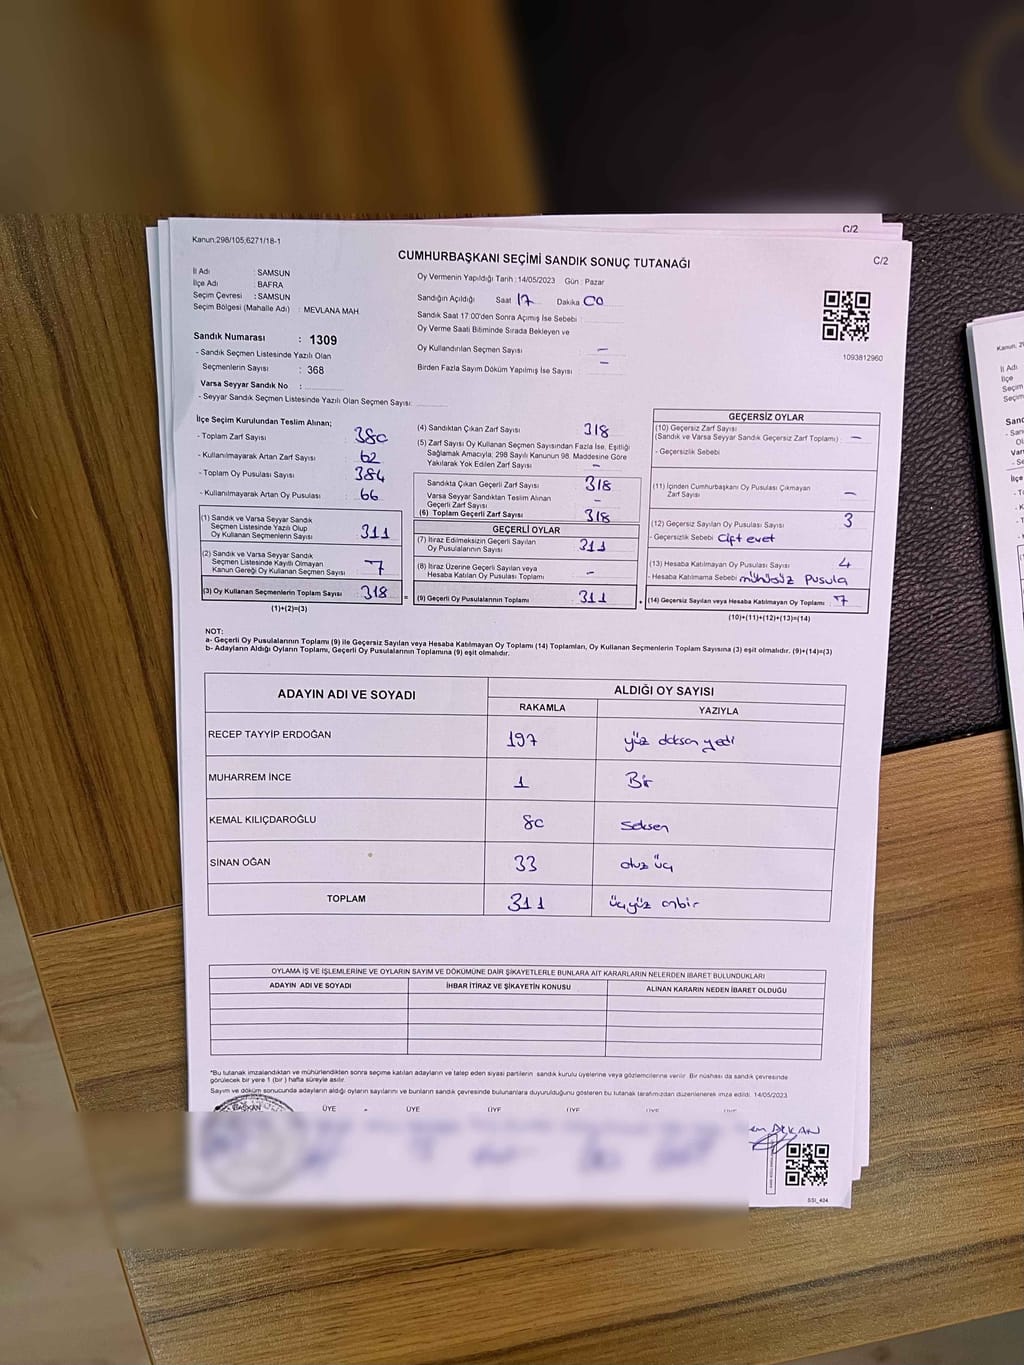 C/2
Kanun,298/105,6271/18-1
CUMHURBAŞKANI SEÇİMİ SANDIK SONUÇ TUTANAĞI
C/2
İl Adı : SAMSUN
İlçe Adı : BAFRA
Seçim Çevresi : SAMSUN
Seçim Bölgesi (Mahalle Adı) : MEVLANA MAH.
Oy Vermenin Yapıldığı Tarih : 14/05/2023 Gün : Pazar
Sandığın Açıldığı Saat 17 Dakika 00
Sandık Saat 17:00'den Sonra Açımış İse Sebebi :
Oy Verme Saati Bitiminde Sırada Bekleyen ve
Oy Kullandırılan Seçmen Sayısı : –
Birden Fazla Sayım Döküm Yapılmış İse Sayısı : –
1093812960
Sandık Numarası : 1309
- Sandık Seçmen Listesinde Yazılı Olan
Seçmenlerin Sayısı : 368
Varsa Seyyar Sandık No :
- Seyyar Sandık Seçmen Listesinde Yazılı Olan Seçmen Sayısı:
İlçe Seçim Kurulundan Teslim Alınan;
- Toplam Zarf Sayısı : 380
- Kullanılmayarak Artan Zarf Sayısı : 62
- Toplam Oy Pusulası Sayısı : 384
- Kullanılmayarak Artan Oy Pusulası : 66
(1) Sandık ve Varsa Seyyar Sandık
Seçmen Listesinde Yazılı Olup
Oy Kullanan Seçmenlerin Sayısı : 311
(2) Sandık ve Varsa Seyyar Sandık
Seçmen Listesinde Kayıtlı Olmayan
Kanun Gereği Oy Kullanan Seçmen Sayısı : 7
(3) Oy Kullanan Seçmenlerin Toplam Sayısı : 318
(1)+(2)=(3)
(4) Sandıktan Çıkan Zarf Sayısı : 318
(5) Zarf Sayısı Oy Kullanan Seçmen Sayısından Fazla İse, Eşitliği
Sağlamak Amacıyla; 298 Sayılı Kanunun 98. Maddesine Göre
Yakılarak Yok Edilen Zarf Sayısı : –
Sandıkta Çıkan Geçerli Zarf Sayısı : 318
Varsa Seyyar Sandıktan Teslim Alınan
Geçerli Zarf Sayısı : –
(6) Toplam Geçerli Zarf Sayısı : 318
GEÇERLİ OYLAR
(7) İtiraz Edilmeksizin Geçerli Sayılan
Oy Pusulalarının Sayısı : 311
(8) İtiraz Üzerine Geçerli Sayılan veya
Hesaba Katılan Oy Pusulası Toplamı : –
= (9) Geçerli Oy Pusulalarının Toplamı : 311
GEÇERSİZ OYLAR
(10) Geçersiz Zarf Sayısı
(Sandık ve Varsa Seyyar Sandık Geçersiz Zarf Toplamı) : –
- Geçersizlik Sebebi
(11) İçinden Cumhurbaşkanı Oy Pusulası Çıkmayan
Zarf Sayısı : –
(12) Geçersiz Sayılan Oy Pusulası Sayısı : 3
- Geçersizlik Sebebi Çift evet
(13) Hesaba Katılmayan Oy Pusulası Sayısı : 4
- Hesaba Katılmama Sebebi mühürsüz pusula
+ (14) Geçersiz Sayılan veya Hesaba Katılmayan Oy Toplamı : 7
(10)+(11)+(12)+(13)=(14)
NOT:
a- Geçerli Oy Pusulalarının Toplamı (9) ile Geçersiz Sayılan veya Hesaba Katılmayan Oy Toplamı (14) Toplamları, Oy Kullanan Seçmenlerin Toplam Sayısına (3) eşit olmalıdır. (9)+(14)=(3)
b- Adayların Aldığı Oyların Toplamı, Geçerli Oy Pusulalarının Toplamına (9) eşit olmalıdır.
ADAYIN ADI VE SOYADI ALDIĞI OY SAYISI
RAKAMLA YAZIYLA
RECEP TAYYİP ERDOĞAN 197 yüz doksan yedi
MUHARREM İNCE 1 Bir
KEMAL KILIÇDAROĞLU 80 Seksen
SİNAN OĞAN 33 otuz üç
TOPLAM 311 üçyüz onbir
OYLAMA İŞ VE İŞLEMLERİNE VE OYLARIN SAYIM VE DÖKÜMÜNE DAİR ŞİKAYETLERLE BUNLARA AİT KARARLARIN NELERDEN İBARET BULUNDUKLARI
ADAYIN ADI VE SOYADI İHBAR İTİRAZ VE ŞİKAYETİN KONUSU ALINAN KARARIN NEDEN İBARET OLDUĞU
*Bu tutanak imzalandıktan ve mühürlendikten sonra seçime katılan adayların ve talep eden siyasi partilerin sandık kurulu üyelerine veya gözlemcilerine verilir. Bir nüshası da sandık çevresinde
görülecek bir yere 1 (bir) hafta süreyle asılır.
Sayım ve döküm sonucunda adayların aldığı oyların sayılarını ve bunların sandık çevresinde bulunanlara duyurulduğunu gösteren bu tutanak tarafımızdan düzenlenerek imza edildi. 14/05/2023
BAŞKAN ÜYE ÜYE ÜYE ÜYE ÜYE ÜYE
SSI_404
Kanun, 29
İl Adı
İlçe
Seçim
Seçim